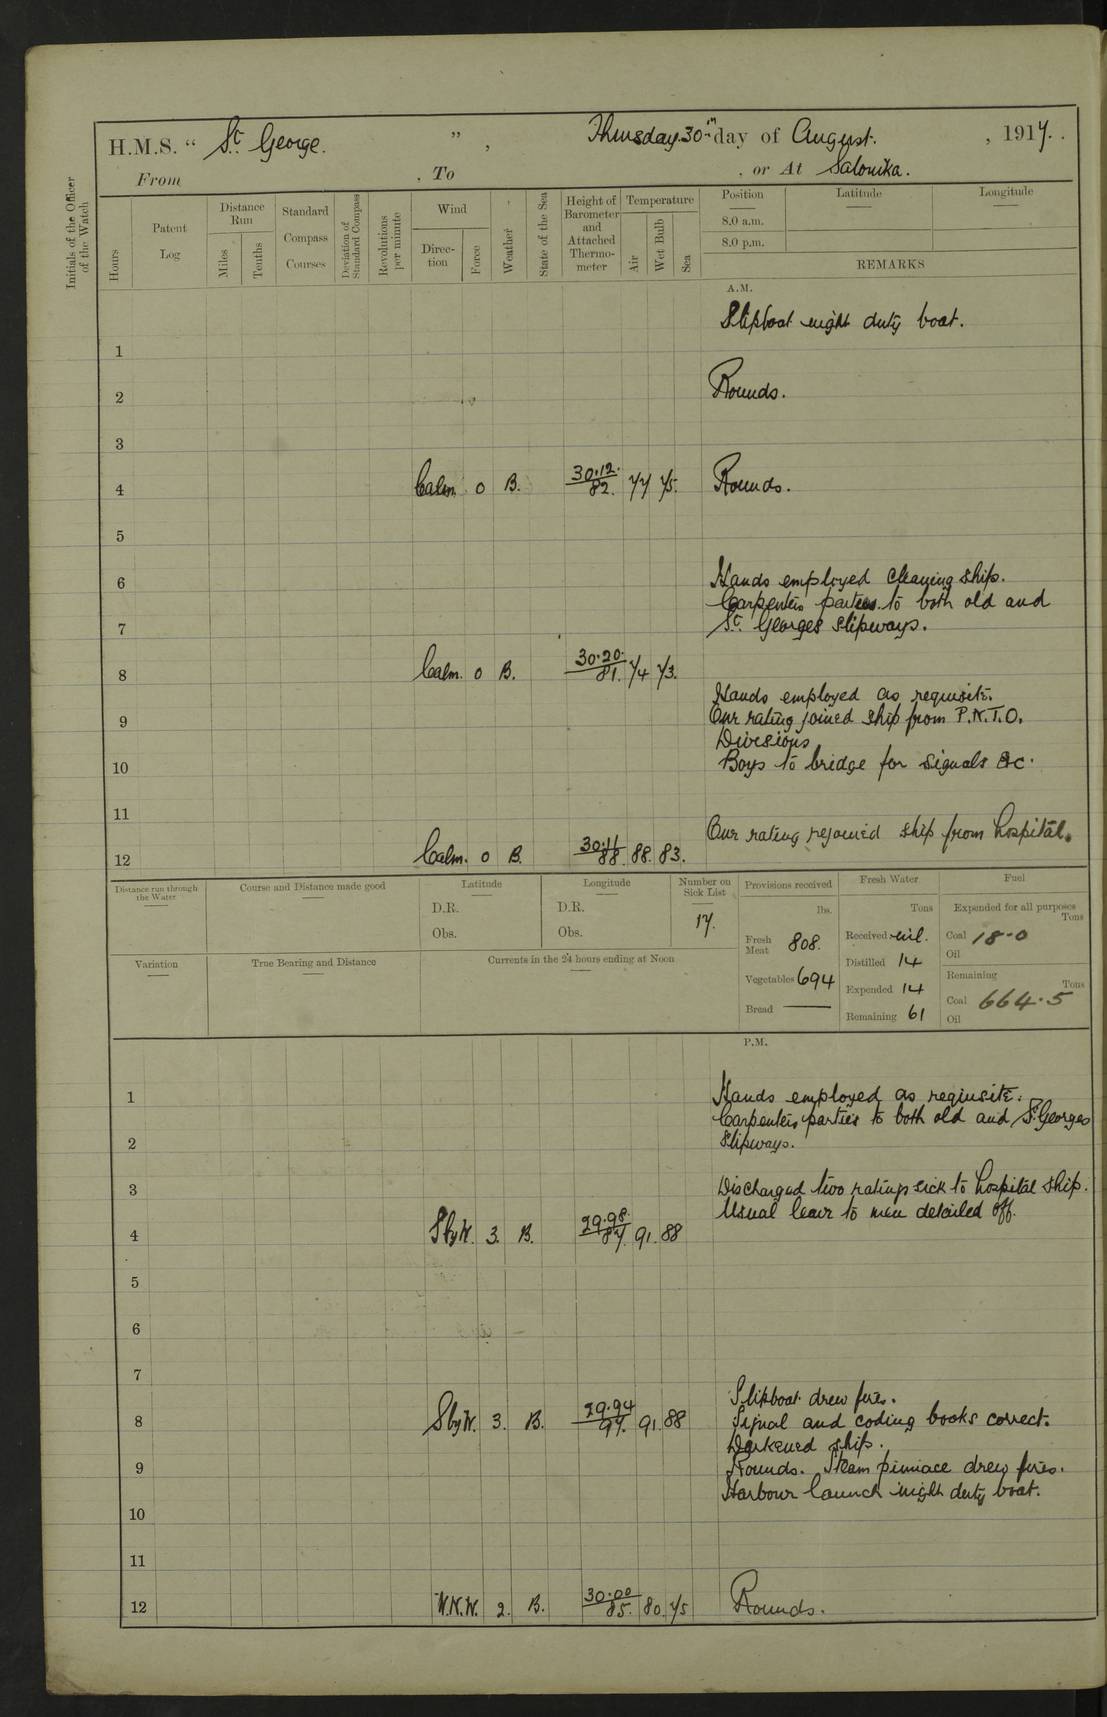 H.M.S. “ St. George. ” , Thursday 30th day of August. , 1917.
From , To , or At Salonika.
Initials of the Officer of the Watch
Hours
Patent Log
Distance Run
Miles
Tenths
Standard Compass Courses
Deviation of Standard Compass
Revolutions per minute
Wind
Direction
Force
Weather
State of the Sea
Height of Barometer and Attached Thermometer
Temperature
Air
Wet Bulb
Sea
Position
Latitude
Longitude
8.0 a.m.
8.0 p.m.
REMARKS
A.M.
Slipboat night duty boat.
1
2 Rounds.
3
4 Calm 0 B. 30.12. 82. 77 75. Rounds.
5
6 Hands employed cleaning ship.
Carpenters parties to both old and
7 St. Georges slipways.
8 Calm. 0 B. 30.20. 81. 74 73.
Hands employed as requisite.
9 One rating joined ship from P.N.T.O.
Divisions
10 Boys to bridge for signals &c.
11
One rating rejoined ship from hospital.
12 Calm. 0 B. 30.11 88. 88. 83.
Distance run through the Water
Course and Distance made good
Latitude
D.R.
Obs.
Longitude
D.R.
Obs.
Number on Sick List
17.
Provisions received
lbs.
Fresh Meat 808.
Vegetables 694
Bread —
Fresh Water
Tons
Received nil.
Distilled 14
Expended 14
Remaining 61
Fuel
Expended for all purposes
Tons
Coal 18.0
Oil
Remaining
Tons
Coal 664.5
Oil
Variation
True Bearing and Distance
Currents in the 24 hours ending at Noon
P.M.
1 Hands employed as requisite.
Carpenters parties to both old and St. Georges
2 slipways.
3 Discharged two ratings sick to hospital ship.
Usual leave to men detailed off.
4 SbyW. 3. B. 29.98. 87. 91. 88
5
6
7
Slipboat drew fires.
8 SbyW. 3. B. 29.94 97. 91. 88 Signal and coding books correct.
Darkened ship.
9 Rounds. Steam pinnace drew fires.
Harbour launch night duty boat.
10
11
12 W.N.W. 2. B. 30.00 85. 80. 75 Rounds.